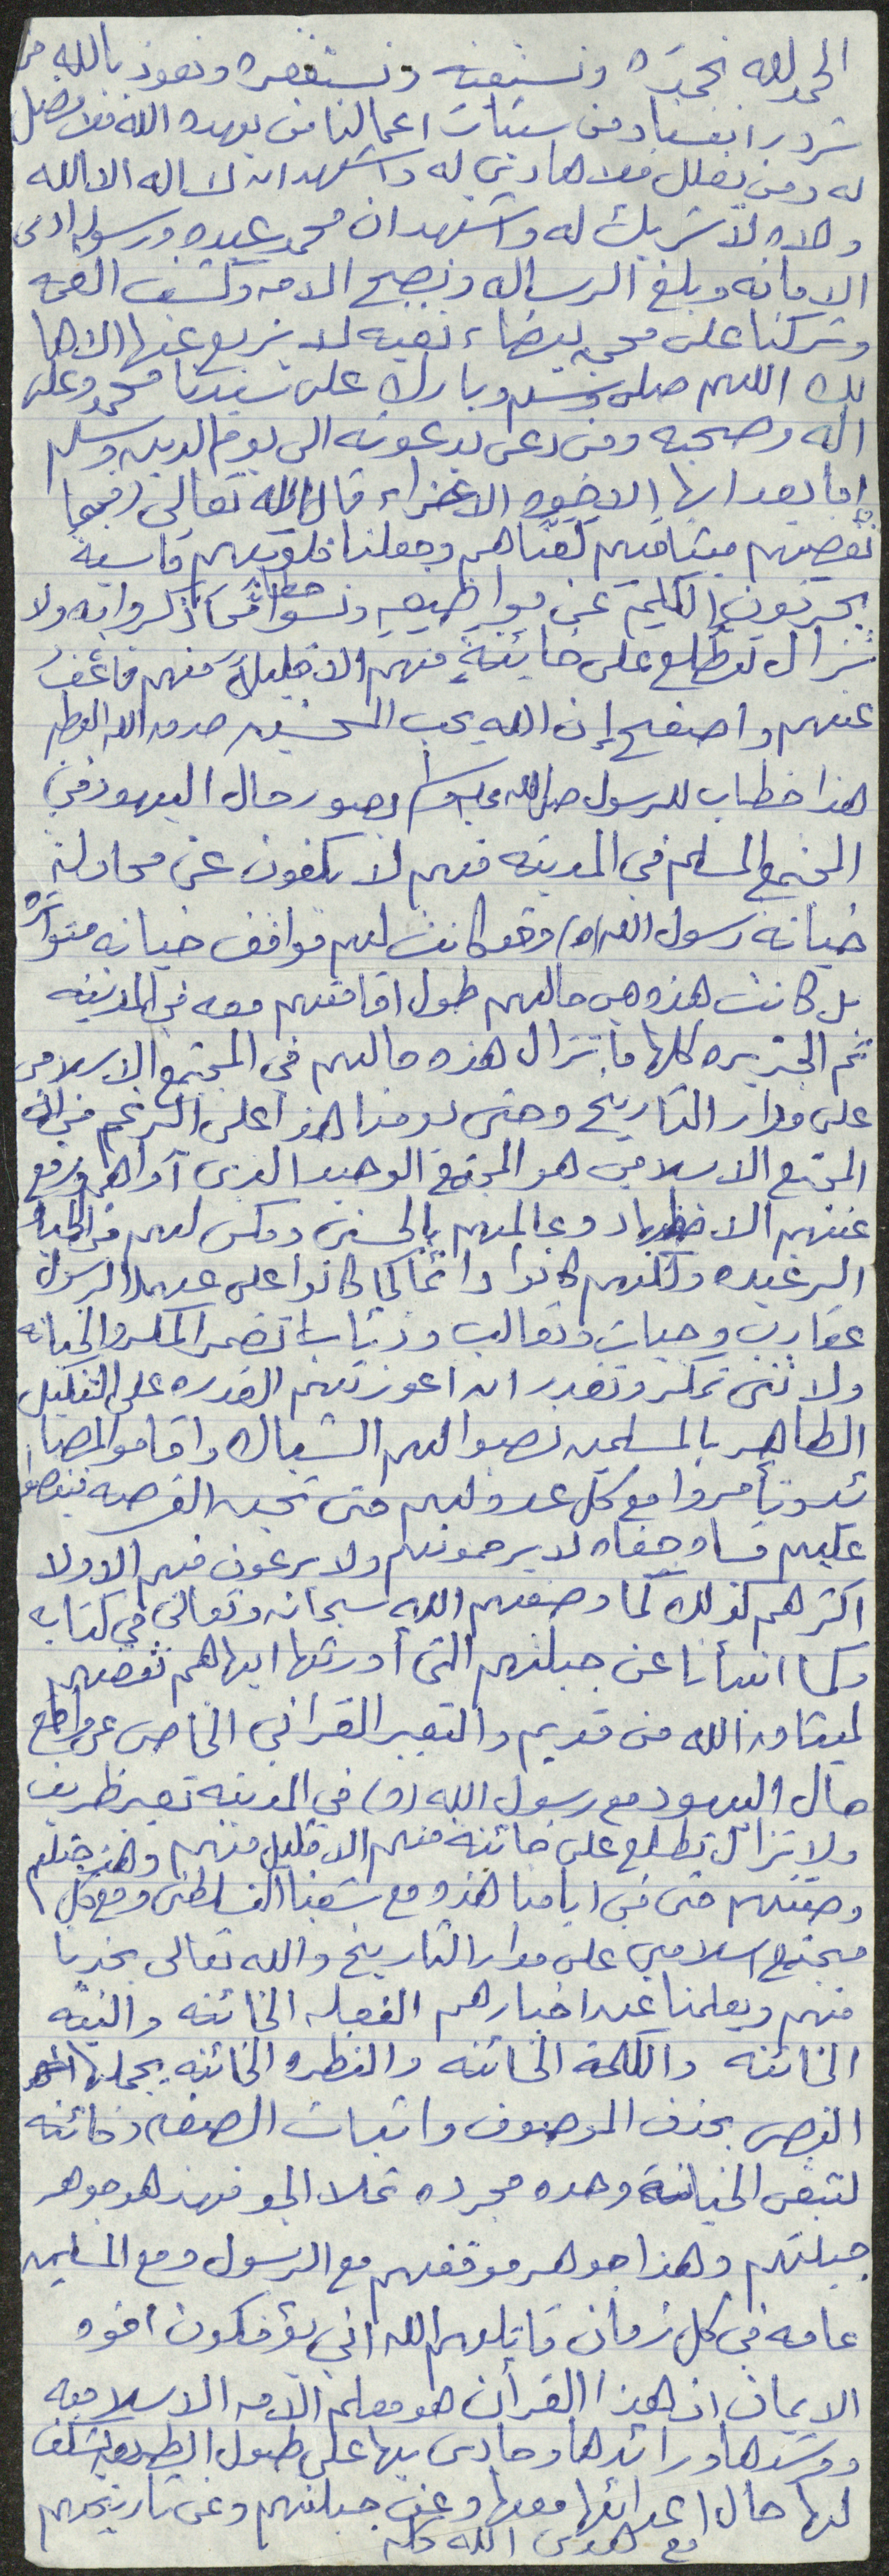 الحمد لله نحمده ونستعينه ونستغفره ونعوذ بالله من
شرور انفسنا ومن سيئات اعمالنا من يهده الله فلا مضل
له ومن يضلل فلا هادي له واشهد ان لا اله الا الله
وحده لا شريك له واشهد ان محمد عبده ورسوله ادى
الامانه وبلغ الرساله ونصح الامه وكشف الغمه
وتركنا على محجه بيضاء نقيه لا يزيع عنها الا ها
لك اللهم صلى وسلم وبارك على سيدنا محمد وعلى
اله وصحبه ومن دعى بدعوته الى يوم الدين وسلم
اما بعد ايها الاخوه الاعزاء قال الله تعالى (فبما
نقضهم ميثاقهم لعناهم وجعلنا قلوبهم قاسيةً
يحرفون الكليم عن مواضيعه ونسوا حظاً مما ذكروا به ولا
تزال تطلع على خائنةٍ منهم الا قليلاً منهم فاعف
عنهم واصفح إن الله يحب المحسنين صدق الله العظيم
هذا خطاب للرسول صلى الله عليه وسلم يصور حال اليهود في
المجتمع المسلم في المدينه فهم لا يكفون عن محاولة
خيانة رسول الله (ص) وقد كانت لهم مواقف خيانه متواتره
بل كانت هذه هي حالهم طول اقامتهم معه في المدينه
ثم الجزيره كلها ما تزال هذه حالهم في المجتمع الاسلامي
على مدار التاريخ وحتى يومنا هذا على الرغم من ان
المجتمع الاسلامي هو المجتمع الوحيد الذي آواهم ورفع
عنهم الاضطهاد وعاملهم بالحسنى ومكن لهم من الحياه
الرغيده ولكنهم كانوا دائماً كما كانوا على عهد الرسول
عقارب وحيات وثعالب وذئاب تضمر المكر والخيانه
ولا تنى تمكر وتغدر ان اعوزتهم القدره على التنكيل
الظاهر بالمسلمين نصبوا لهم الشباك واقاموا المصا
ئد وتأمروا مع كل عدو لهم حتى تحين الفرصه فينقضوا
عليهم قساه جفاه لا يرحمونهم ولا يرعون فيهم الا ولا
اكثرهم كذلك كما وصفهم الله سبحانه وتعالى في كتابه
وكما انبأنا عن جبلتهم التي أورثها ايها هم نقضهم
لميثاق الله من قديم والتعبير القراني الخاص عن واقع
حال اليهود مع رسول الله (ص) في المدينه تعبير ظريف
ولا تزال تطلع على خائنة منهم الا قليل منهم وهذه جبلتهم
وصفتهم حتى في ايامنا هذه مع شعبنا الفلسطيني ومع كل
مجتمع اسلامي على مدار التاريخ والله تعالى يخبرنا
منهم ويعلمنا عن اخبارهم الفعله الخائنه والنيه
الخائنه والكلمة الخائنه والنظره الخائنه يجملها
النص بحذف الموصوف واثبات الصفه (خائنه
لتبقى الخيانة وحده مجرده تملا الجو فهذا هو جوهر
جبلتهم وهذا جوهر موقفهم مع الرسول ومع المسلمين
عامه في كل زمان قاتلهم الله اني يؤفكون اخوه
الايمان ان هذا القرأن هو معلم الامه الاسلاميه
ومرشدها ورائدها وحادى بها على طول الطريق يكشف
لها حال اعدائها معها وعن جبلتهم وعن تاريخهم
مع هدى الله كله